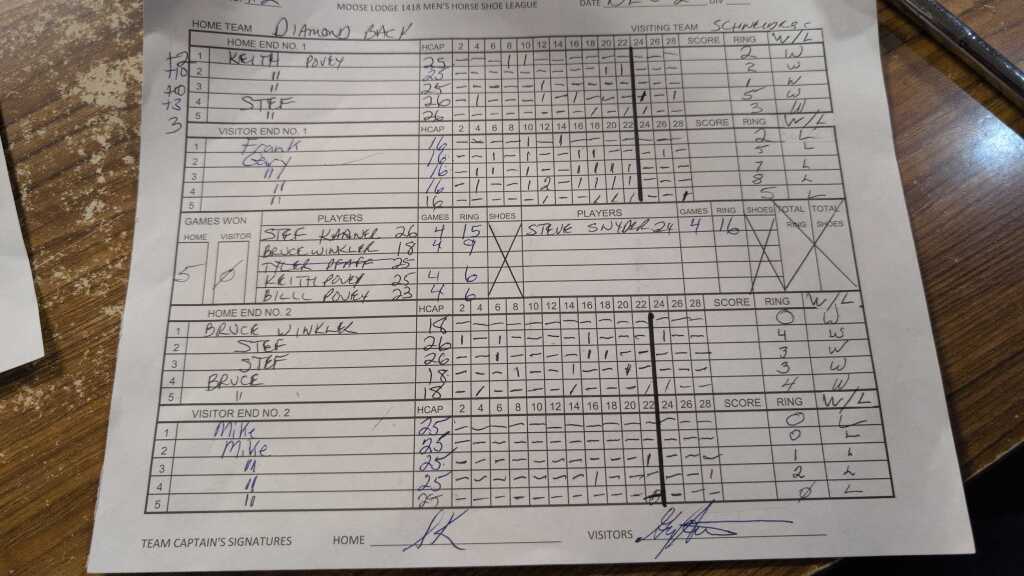 MOOSE LODGE 1418 MEN'S HORSE SHOE LEAGUE DATE DIV
HOME TEAM DIAMOND BACK VISITING TEAM
HOME END NO. 1 HCAP 2 4 6 8 10 12 14 16 18 20 22 24 26 28 SCORE RING W/L
1 KEITH POVEY 25 2 W
2 " 25 2 W
3 " 25 1 W
4 STEF 26 5 W
5 " 26 3 W
VISITOR END NO. 1 HCAP 2 4 6 8 10 12 14 16 18 20 22 24 26 28 SCORE RING W/L
1 Frank 16 2 L
2 Gary 16 5 L
3 " 16 7 L
4 " 16 8 L
5 " 16 5 L
GAMES WON PLAYERS GAMES RING SHOES PLAYERS GAMES RING SHOES TOTAL RING TOTAL SHOES
HOME VISITOR
5 Ø
STEF KARNER 26 4 15 STEVE SNYDER 24 4 16
BRUCE WINKLER 18 4 9
TYLER PFAFF 25
KEITH POVEY 25 4 6
BILLL POVEY 23 4 6
HOME END NO. 2 HCAP 2 4 6 8 10 12 14 16 18 20 22 24 26 28 SCORE RING W/L
1 BRUCE WINKLER 18 0 W
2 STEF 26 4 W
3 STEF 26 3 W
4 BRUCE 18 3 W
5 " 18 4 W
VISITOR END NO. 2 HCAP 2 4 6 8 10 12 14 16 18 20 22 24 26 28 SCORE RING W/L
1 Mike 25 0 L
2 Mike 25 0 L
3 " 25 1 L
4 " 25 2 L
5 " 25 Ø L
TEAM CAPTAIN'S SIGNATURES HOME SK VISITORS